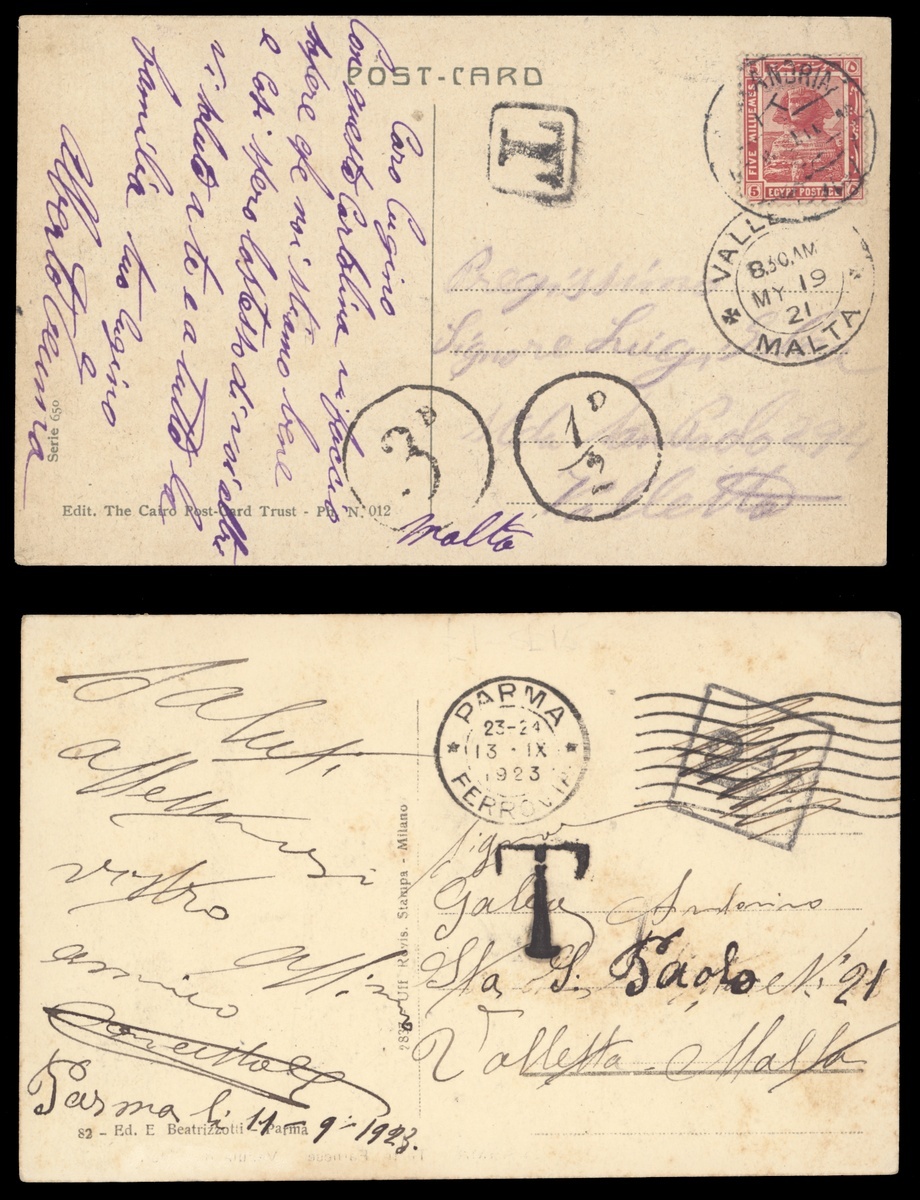 POST-CARD
Caro Cugino
Con questa Cartolina vi faccio
sapere che noi stiamo bene
e Così spero lo stesso di voi altri
vi saluto a te e a tutta la
familia tuo Cugino
Serie 650
Edit. The Cairo Post-Card Trust - Ph. N. 012
T
FIVE MILLIEMES
5 5
EGYPT POSTAGE
ANDRIA
VALLE
8.30 AM
MY 19
21
MALTA
Signore Luigi
Valletta
Malta
3 D
1 D
2
Saluti
affettuosi
vostro
amico
Parma li 11 - 9 - 1923.
82 - Ed. E Beatrizzotti - Parma
Uff Revis. Stampa - Milano
PARMA
23-24
13 · IX
1923
FERROVIA
T
Signor
Galea Antonino
Sta S. Paolo N. 21
Valletta Malta